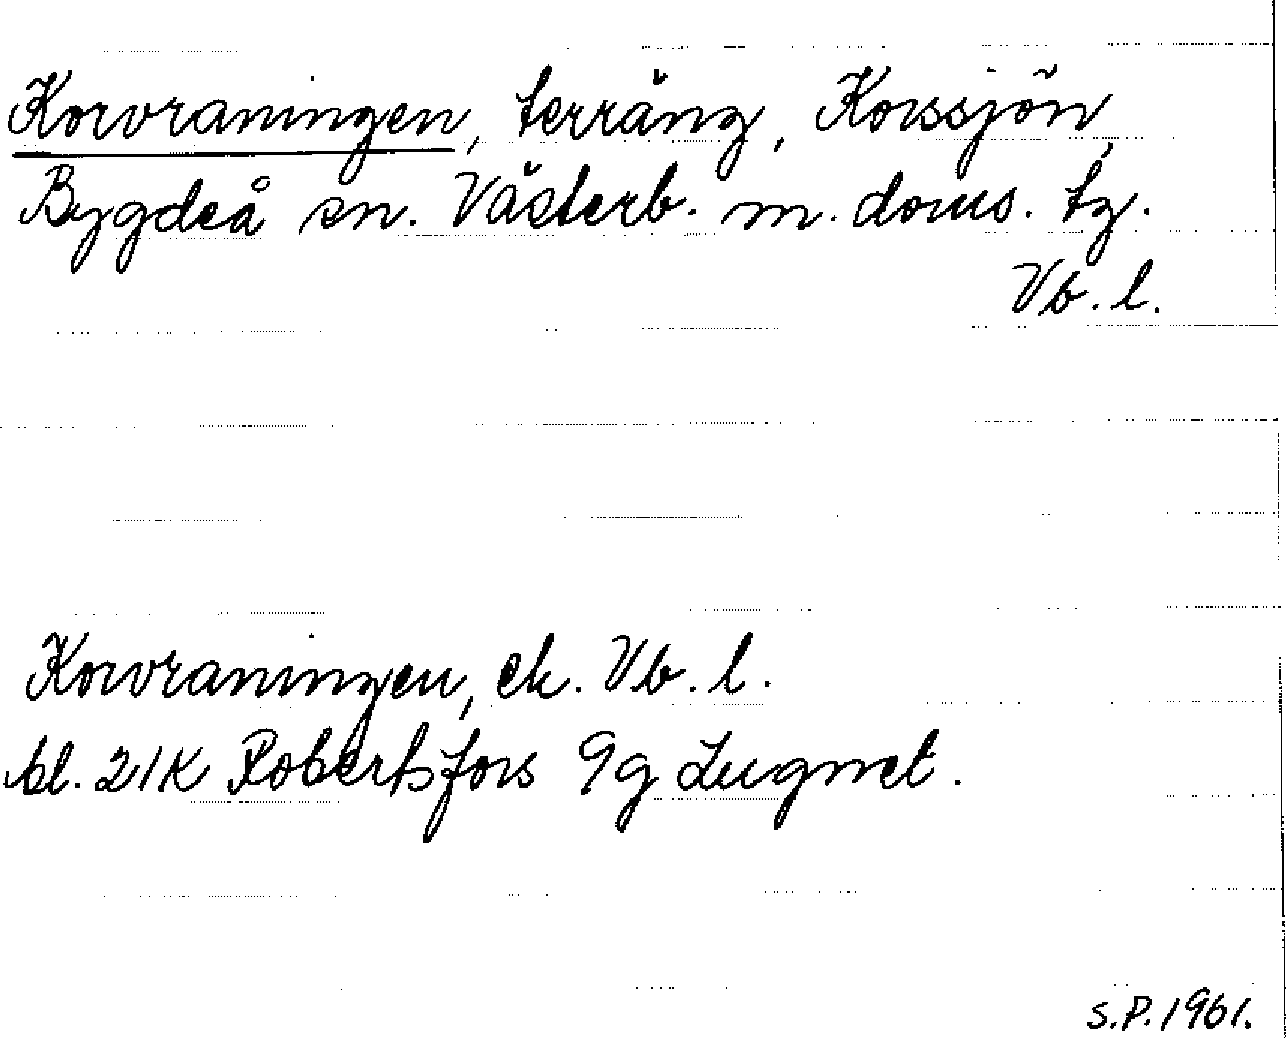 Korvraningen, terräng, Korssjön,
Bygdeå sn. Västerb. m. doms. tg.
Vb. l.
Korvraningen, ek. Vb. l.
bl. 21K Robertsfors 9g Lugnet.
S.P. 1961.